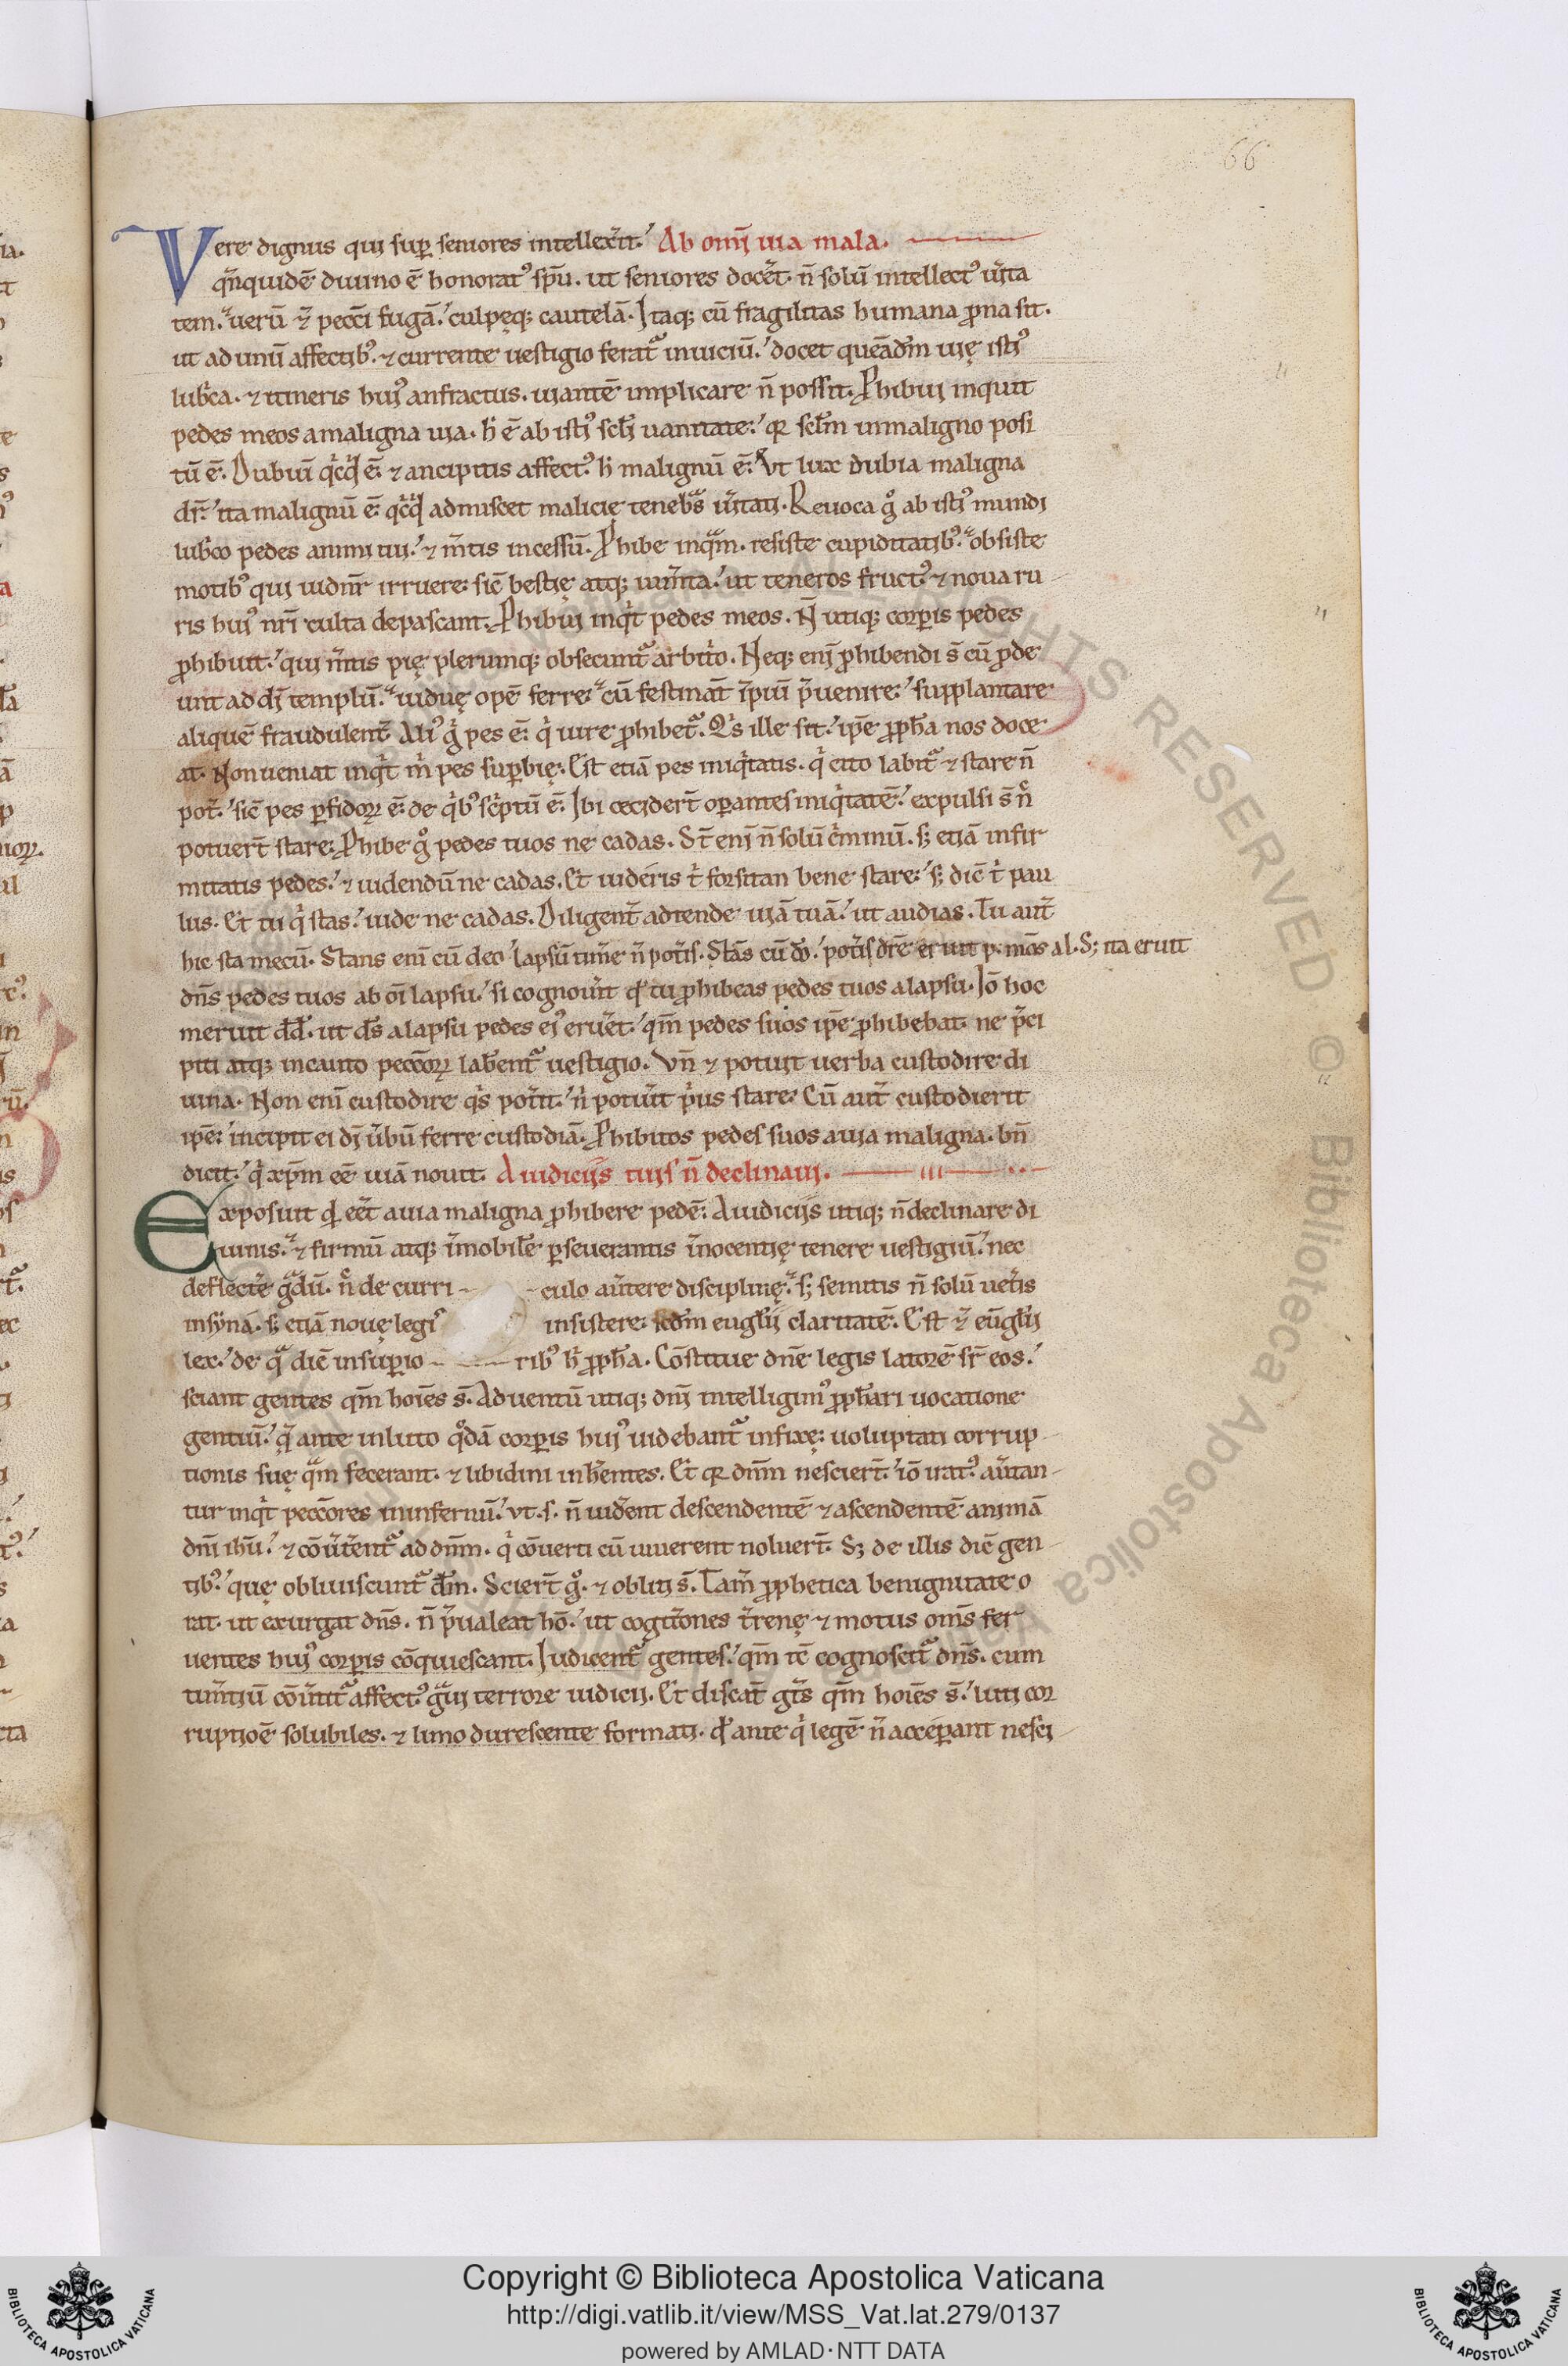 66
Vere dignus qui sup̄ seniores intellex̄it. Ab om̄i uia mala.
qn̄quidē diuino ē honorat᷒ sp̄u. ut seniores docēt. n̄ solū intellect᷒ ūita
tem. uerū & pecc̄i fugā. culpęq; cautelā. Itaq; cū fragilitas humana ꝓna sit.
ut ad unū affectib᷒. & currente uestigio ferat᷑ in uiciū. docet quēadm̄ uię isti᷒
lub̄ca. & itineris hui᷒ anfractus. uiantē implicare n̄ possit. Ꝓhibui inquit
pedes meos a maligna uia. h̄ ē ab isti᷒ sc̄li uanitate. qꝛ sc̄lm in maligno posi
tū ē. Dubiū qͥcqͥd ē. & ancipitis affect᷒ h̄ malignū ē. Vt lux dubia maligna
dr̄. ita malignū ē. qͥcqͥd admiscet malicię tenebᷓs ūitati. Reuoca gͦ ab isti᷒ mundi
lub̄co pedes animi tui. & m̄tis incessū. Ꝓhibe inqᷓm. resiste cupiditatib᷒. obsiste
motib᷒ qui uidnr̄ irruere. sic̄ bestię atq; ium̄ta. ut teneros fruct᷒ & noua ru
ris hui᷒ nr̄i culta depascant. Ꝓhibui inqͥt pedes meos. N̄ utiq; corꝑis pedes
ꝓhibuit. qui m̄tis pię plerumq; obsecunt᷑ arbitͥo. Neq; eni ꝓhibendi s̄ cū ꝓde
unt ad dī templū. uiduę opē ferre. cū festinat̄ īpiū p̄uenire. supplantare
aliquē fraudulent̄. Ali᷒ gͥ pes ē. qͥ iure ꝓhibet᷑. Qͥs ille sit. ip̄e ꝓph̄a nos doce
at. Non ueniat inqͥt m̄ pes sup̄bię. Est etiā pes iniqͥtatis. qͥ cito labit᷑ & stare n̄
pot̄. sic̄ pes ꝑfidoꝝ ē. de qͥb᷒ scͥptū ē. Ibi cecider̄t oꝑantes iniqͥtatē. expulsi s̄ n̄
potuer̄t stare. Ꝓhibe gͦ pedes tuos ne cadas. S̄t eni n̄ solū cͥminū. s; etiā infir
mitatis pedes. & uidendū ne cadas. Et uideris t̄ forsitan bene stare. s; dic̄ t̄ pau
lus. Et tu qͥ stas. uide ne cadas. Diligent̄ adtende uiā tuā. ut audias. Tu aut̄
hic sta mecū. Stans eni cū deo lapsū tim̄e n̄ pot̄is. Stās cū d̄o. S; ita eruit
dn̄s pedes tuos ab oī lapsu. si cognoūit qd̄ tu ꝓhibeas pedes tuos a lapsu. Iō hoc
meruit dd̄. ut ds̄ a lapsu pedes ei᷒ erūet. qm̄ pedes suos ip̄e ꝓhibebat. ne p̄ci
piti atq; incauto pecc̄oꝝ labent᷑ uestigio. Vn̄ & potuit uerba custodire di
uina. Non eni custodire qͥs pot̄it. n̄ potūit pͥus stare. Cū aut̄ custodierit
ip̄e. incipit ei dī ūbū ferre custodiā. Ꝓhibitos pedes suos a uia maligna. bn̄
dicit. qͥ xp̄m eē uiā nouit. A iudiciis tuis n̄ declinaui.
Exposuit qd̄ eēt a uia maligna ꝓhibere pedē. A iudiciis utiq; n̄ declinare di
uinis. & firmū atq; īmobilē ꝑseuerantis īnocentię tenere uestigiū. nec
deflect̄e gᷓdū. n̄ de curri- -culo aūtere disciplinę. s; semitis n̄ solū uet̄is
in syna. s; etiā nouę legis insistere. scd̄m eugl̄ii claritatē. Est & eūgl̄ii
lex. de qᷓ dic̄ in suꝑio- rib᷒ h̄ ꝓph̄a. Cōstitue dn̄e legis latorē sr̄ eos.
sciant gentes qm̄ hoīes s̄. Aduentū utiq; dn̄i intelligim᷒ ꝓph̄ari uocatione
gentiū. qͣ ante in luto qͦdā corꝑis hui᷒ uidebant᷑ infixę. uoluptati corrup-
tionis suę qᷓm fecerant. & libidini inh̄entes. Et qꝛ dnm̄ nescier̄t. iō irat᷒ aūtan-
tur inqͥt pecc̄ores in infernū. ut. s. n̄ uid̄ent descendentē & ascendentē animā
dn̄i ih̄u. & cōūt̄ent᷑ ad dnm̄. qͥ cōuerti cū uiuerent noluer̄t. S; de illis dic̄ gen-
tib᷒. quę obliuiscunt᷑ dm̄. Scier̄t gͦ. & obliti s̄. Tam̄ ꝓphetica benignitate o
rat. ut exurgat dn̄s. n̄ p̄ualeat hō. ut cogit̄ones t̄renę & motus om̄s fer
uentes hui᷒ corꝑis cōquiescant. Iudicent᷑ gentes. qm̄ tc̄ cognoscit᷑ dn̄s. cum
tim̄tiū cōūtit᷑ affect᷒ gᷓui terrore iudicii. Et discāt gt̄s qm̄ hoīes s̄. luti cor
ruptioē solubiles. & limo durescente formati. qd̄ ante qͥ legē n̄ acceꝑant nesci-
Copyright © Biblioteca Apostolica Vaticana
http://digi.vatlib.it/view/MSS_Vat.lat.279/0137
powered by AMLAD·NTT DATA
BIBLIOTECA APOSTOLICA VATICANA
BIBLIOTECA APOSTOLICA VATICANA